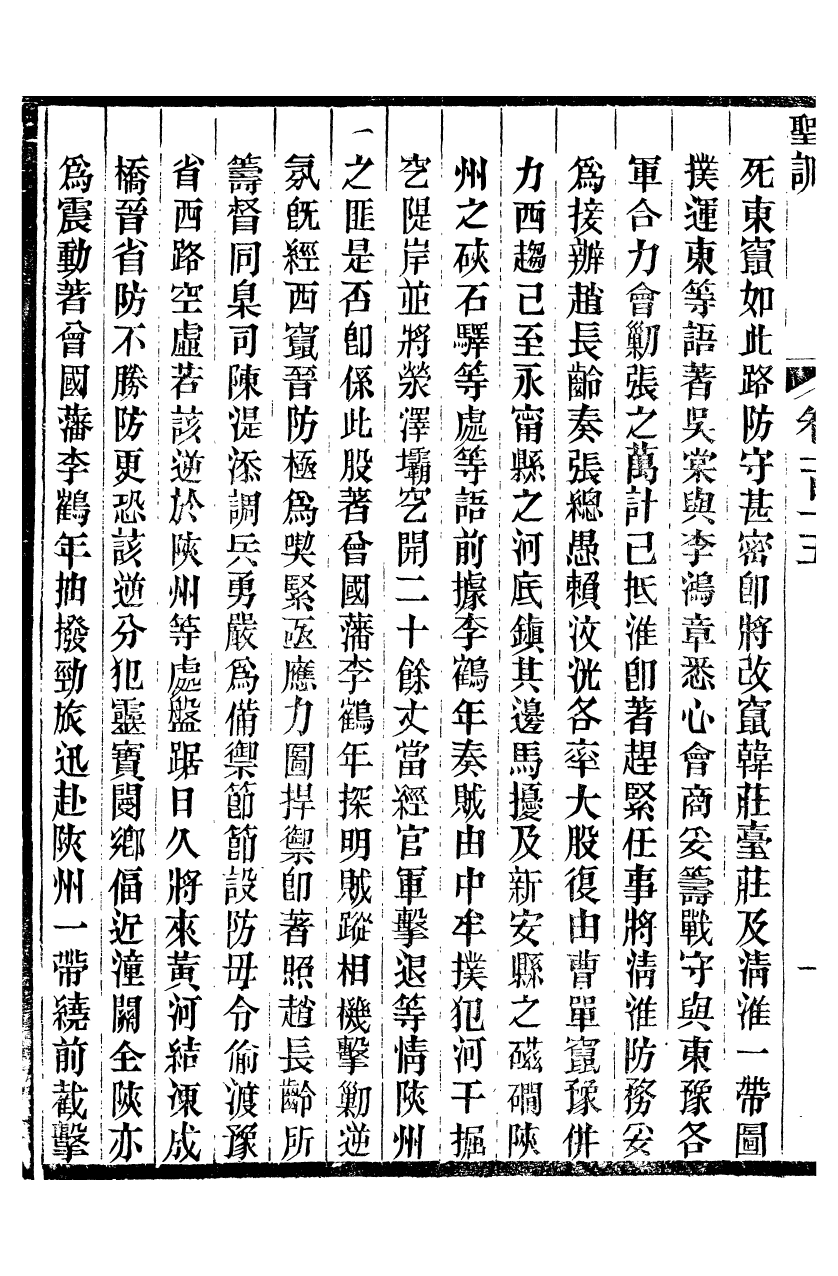 聖訓
卷一百十五
一
死東竄如此路防守甚密卽將改竄韓莊臺莊及淸淮一帶圖
撲運東等語著吳棠與李鴻章悉心會商妥籌戰守與東豫各
軍合力會勦張之萬計已抵淮卽著趕緊任事將淸淮防務妥
爲接辦趙長齡奏張總愚賴汶洸各率大股復由曹單竄豫併
力西趨已至永甯縣之河底鎭其邊馬擾及新安縣之磁磵陝
州之硤石驛等處等語前據李鶴年奏賊由中牟撲犯河干掘
空隄岸並將滎澤壩空開二十餘丈當經官軍擊退等情陝州
一之匪是否卽係此股著曾國藩李鶴年探明賊蹤相機擊勦逆
氛旣經西竄晉防極爲喫緊亟應力圖捍禦卽著照趙長齡所
籌督同臬司陳湜添調兵勇嚴爲備禦節節設防毋令偷渡豫
省西路空虛若該逆於陝州等處盤踞日久將來黃河結凍成
橋晉省防不勝防更恐該逆分犯靈寶閿鄕偪近潼關全陝亦
爲震動著曾國藩李鶴年抽撥勁旅迅赴陝州一帶繞前截擊